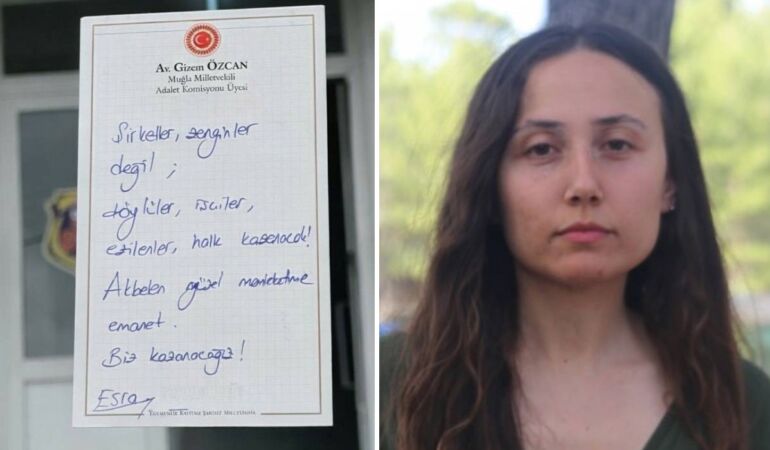 Av. Gizem ÖZCAN
Muğla Milletvekili
Adalet Komisyonu Üyesi
Şirketler, zenginler
değil ;
köylüler, isciler,
ezilenler, halk kazanacak!
Akbelen güzel memleketime
emanet.
Biz kazanacağız!
Esra
Egemenlik Kayıtsız Şartsız Milletindir